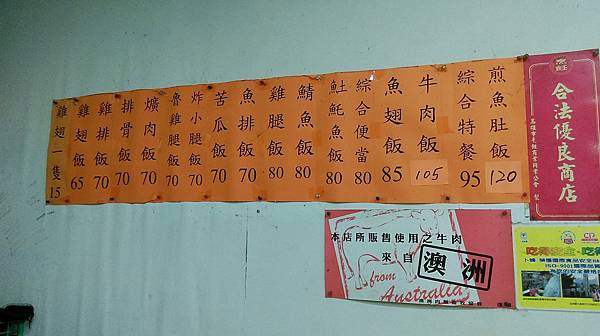 煎魚肚飯 120
綜合特餐 95
牛肉飯 105
魚翅飯 85
綜合便當 80
𩵚魠魚飯 80
鯖魚飯 80
雞腿飯 80
魚排飯 70
苦瓜飯 70
炸小腿飯 70
魯雞腿飯 70
爌肉飯 70
排骨飯 70
雞排飯 70
雞翅飯 65
雞翅一隻 15
烹飪
合法優良商店
本店所販售使用之牛肉
來自
澳洲
from
Australia